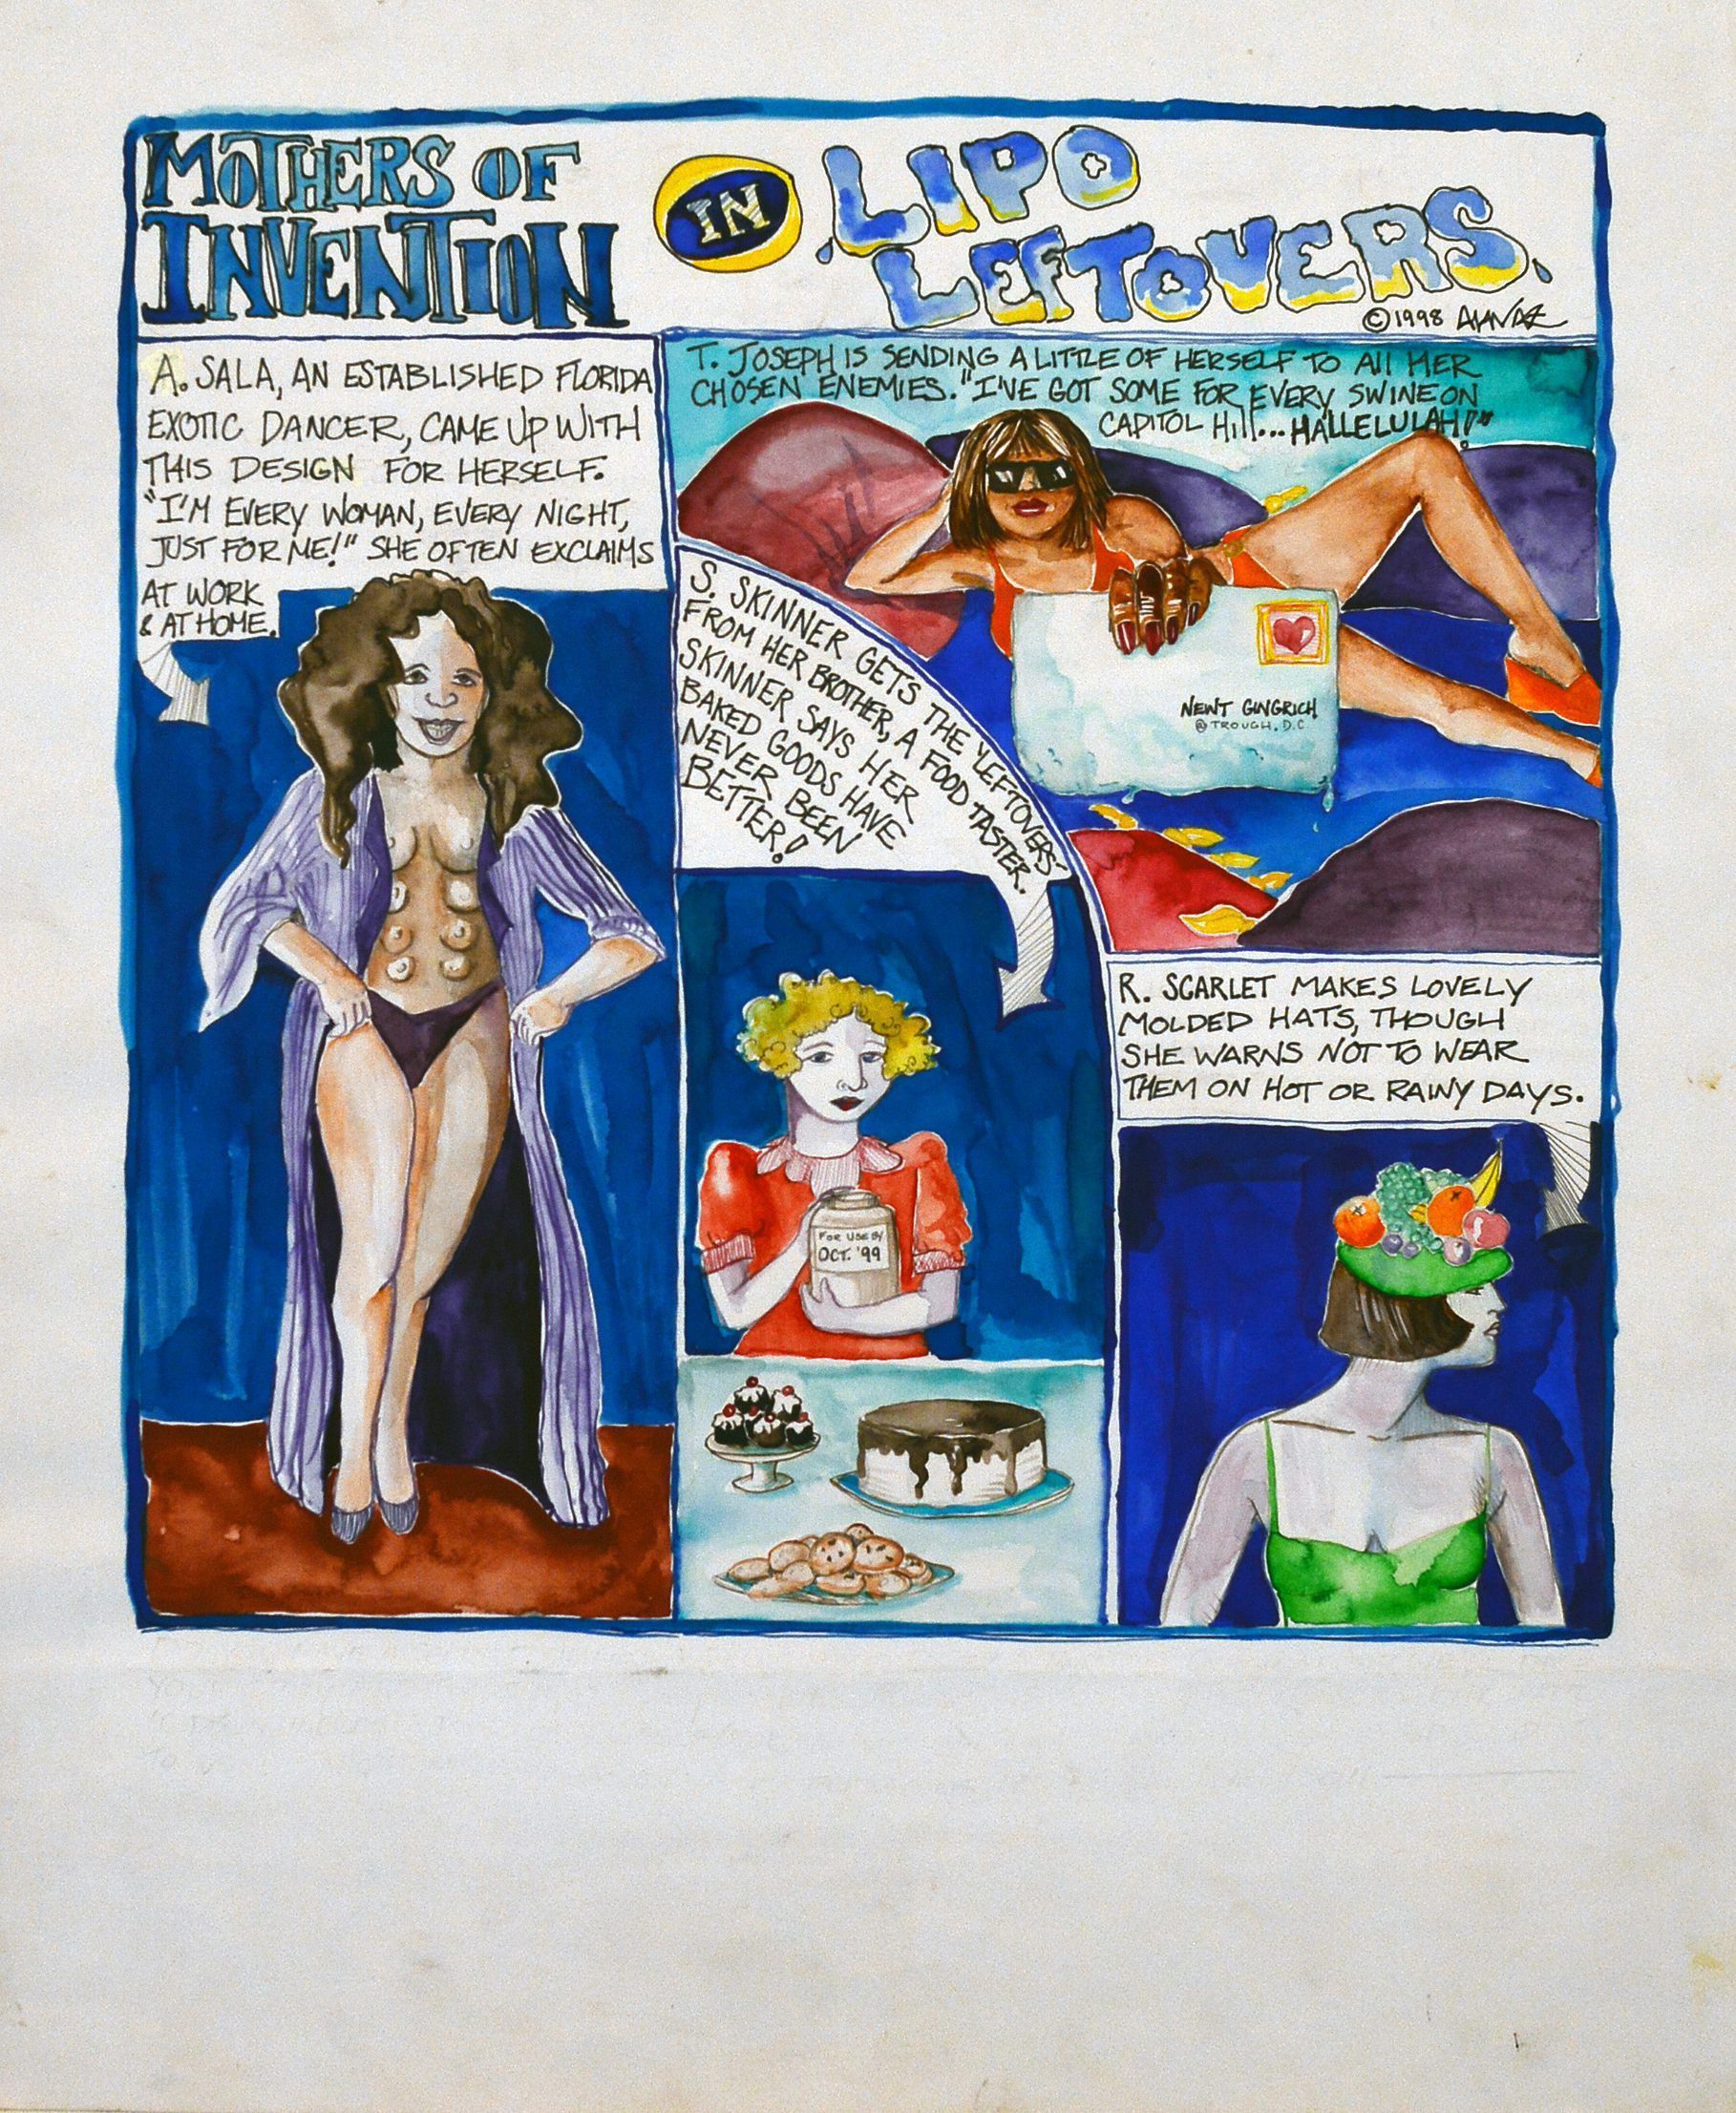 MOTHERS OF
INVENTION
IN
LIPO
LEFTOVERS.
©1998
A. SALA, AN ESTABLISHED FLORIDA
EXOTIC DANCER, CAME UP WITH
THIS DESIGN FOR HERSELF.
"I'M EVERY WOMAN, EVERY NIGHT,
JUST FOR ME!" SHE OFTEN EXCLAIMS
AT WORK
& AT HOME.
T. JOSEPH IS SENDING A LITTLE OF HERSELF TO All HER
CHOSEN ENEMIES. "I'VE GOT SOME FOR EVERY SWINE ON
CAPITOL Hill... HALLELULAH!"
NEWT GINGRICH
@ TROUGH, D.C.
S. SKINNER GETS THE 'LEFTOVERS'
FROM HER BROTHER, A FOOD TASTER.
SKINNER SAYS HER
BAKED GOODS HAVE
NEVER BEEN
BETTER!
FOR USE BY
OCT. '99
R. SCARLET MAKES LOVELY
MOLDED HATS, THOUGH
SHE WARNS NOT TO WEAR
THEM ON HOT OR RAINY DAYS.